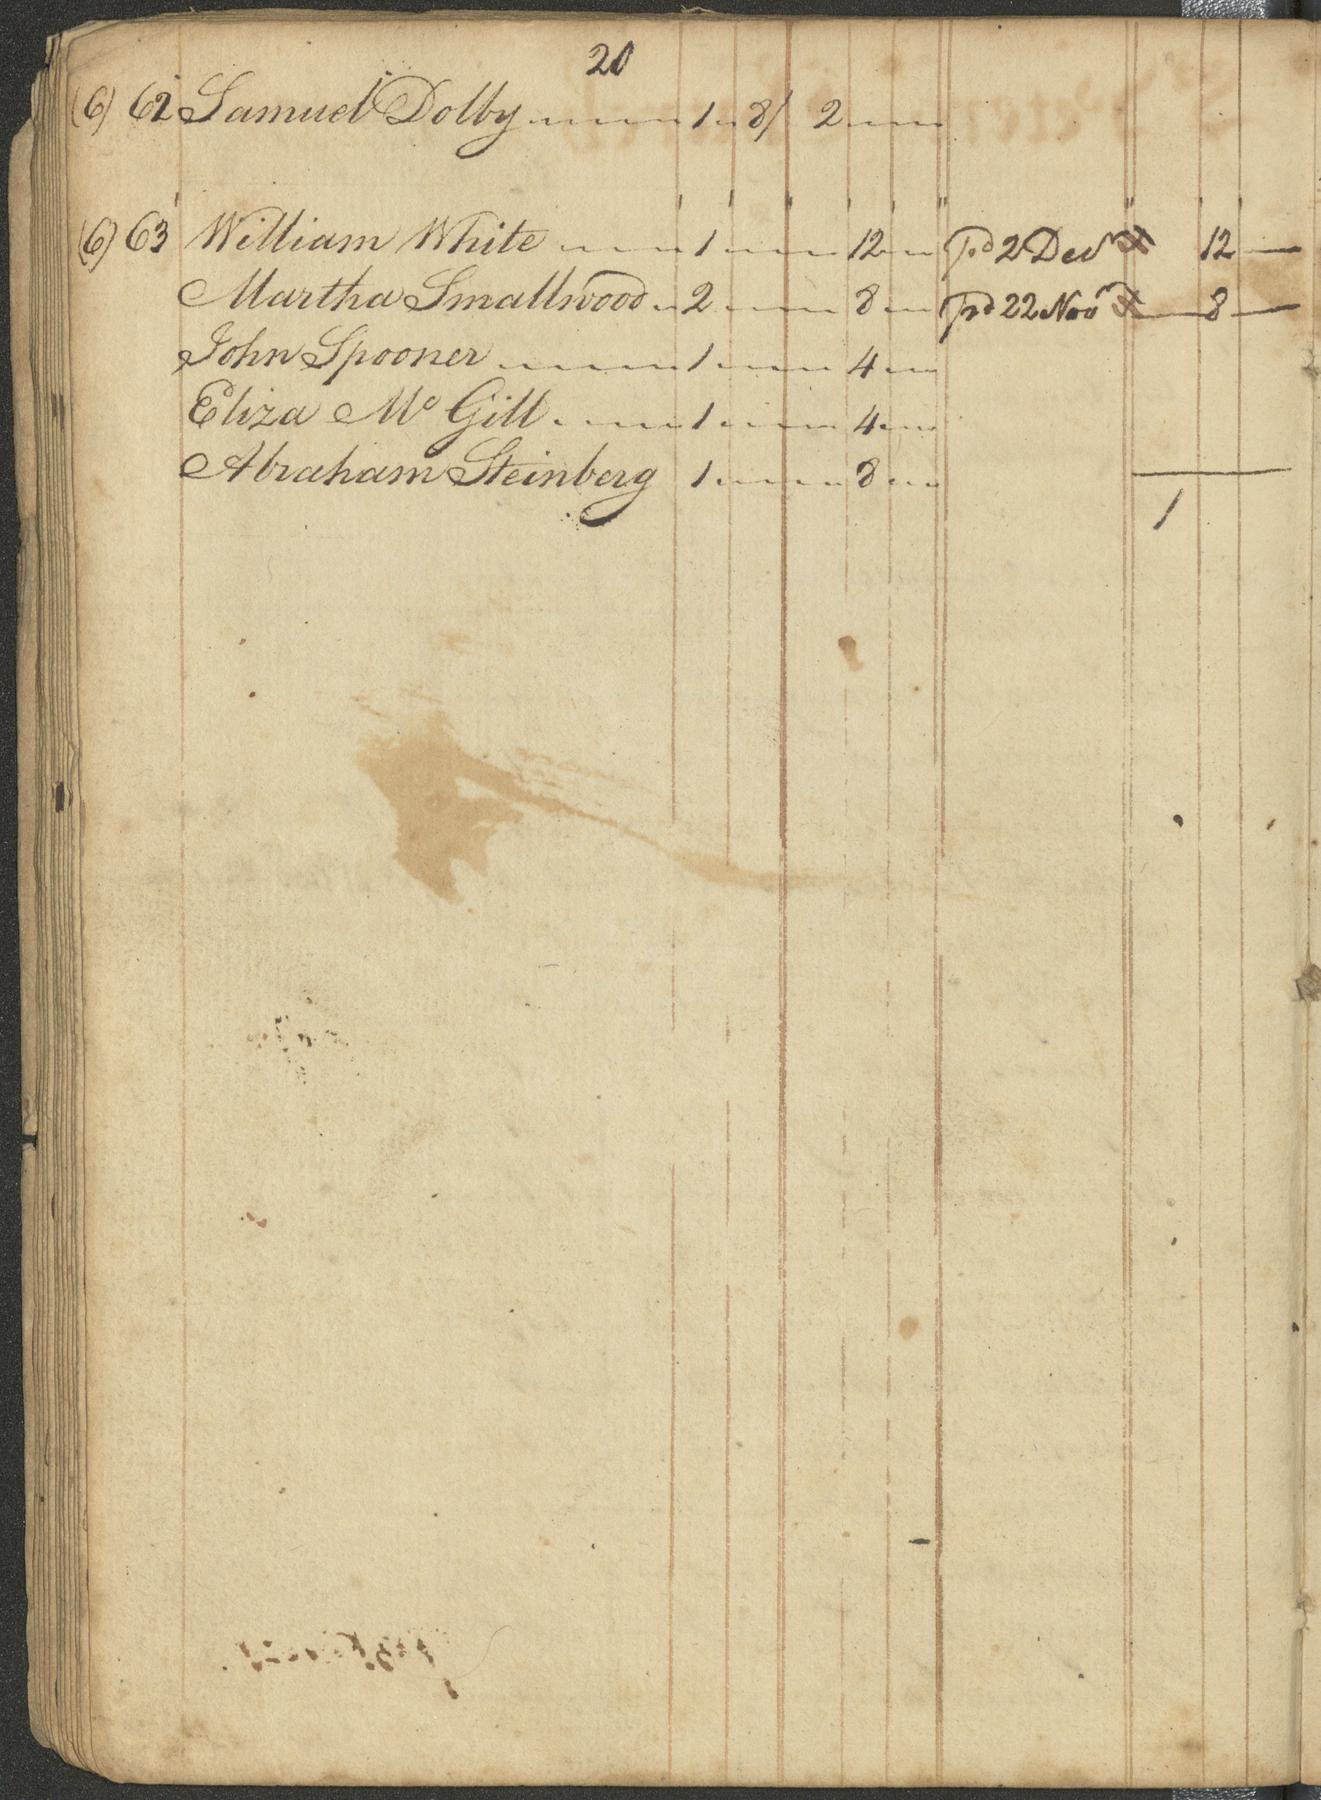 20
(6) 62 Samuel Dolby 1 8/ 2
(6) 63 William White 1 12 Pd 2 Decr 12
Martha Smallwood 2 8 Pd 22 Novr 8
John Spooner 1 4
Eliza Mc Gill 1 4
Abraham Steinberg 1 8
1